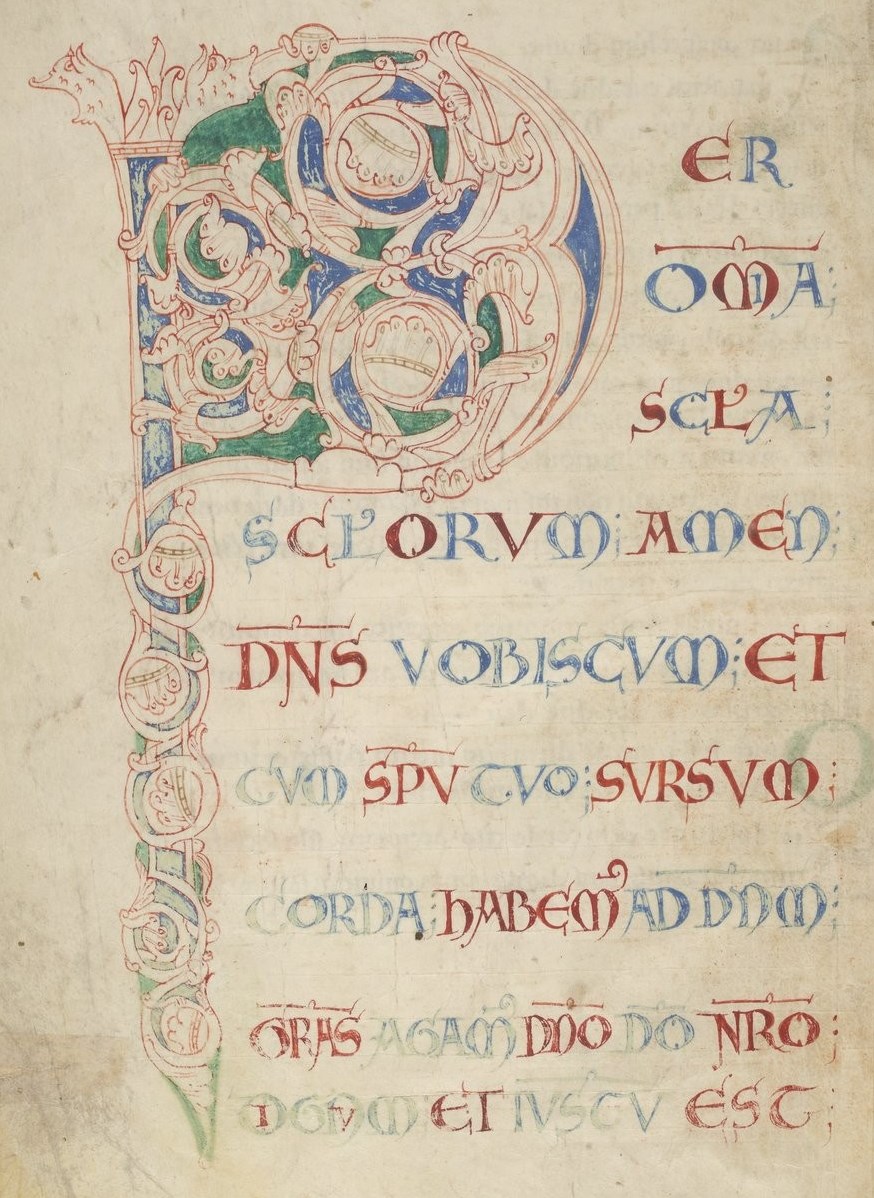 PER
OMIA:
SCLA:
SCLORVM: AMEN:
DNS VOBISCVM: ET
CVM SPV TVO: SVRSVM
CORDA: hABEM AD DNM:
GRAS AGAM DNO DO NRO:
DIGNVM ET IVSTV EST: